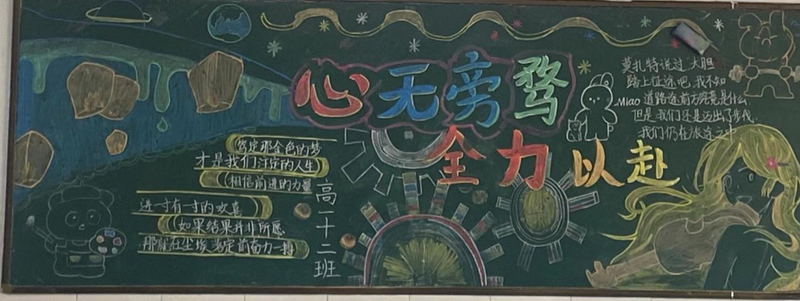 心无旁骛
全力以赴
莫扎特说过 大胆
踏上征途吧，我不知
Miao 道路途前方究竟是什么
但是我们还是迈出了步伐，
我们仍在旅途之中
笃定那金色的梦
才是我们注定的人生
相信前进的力量
进一寸有一寸的欢喜
如果结果并非所愿
那就在尘埃落定前奋力一搏
高一十二班